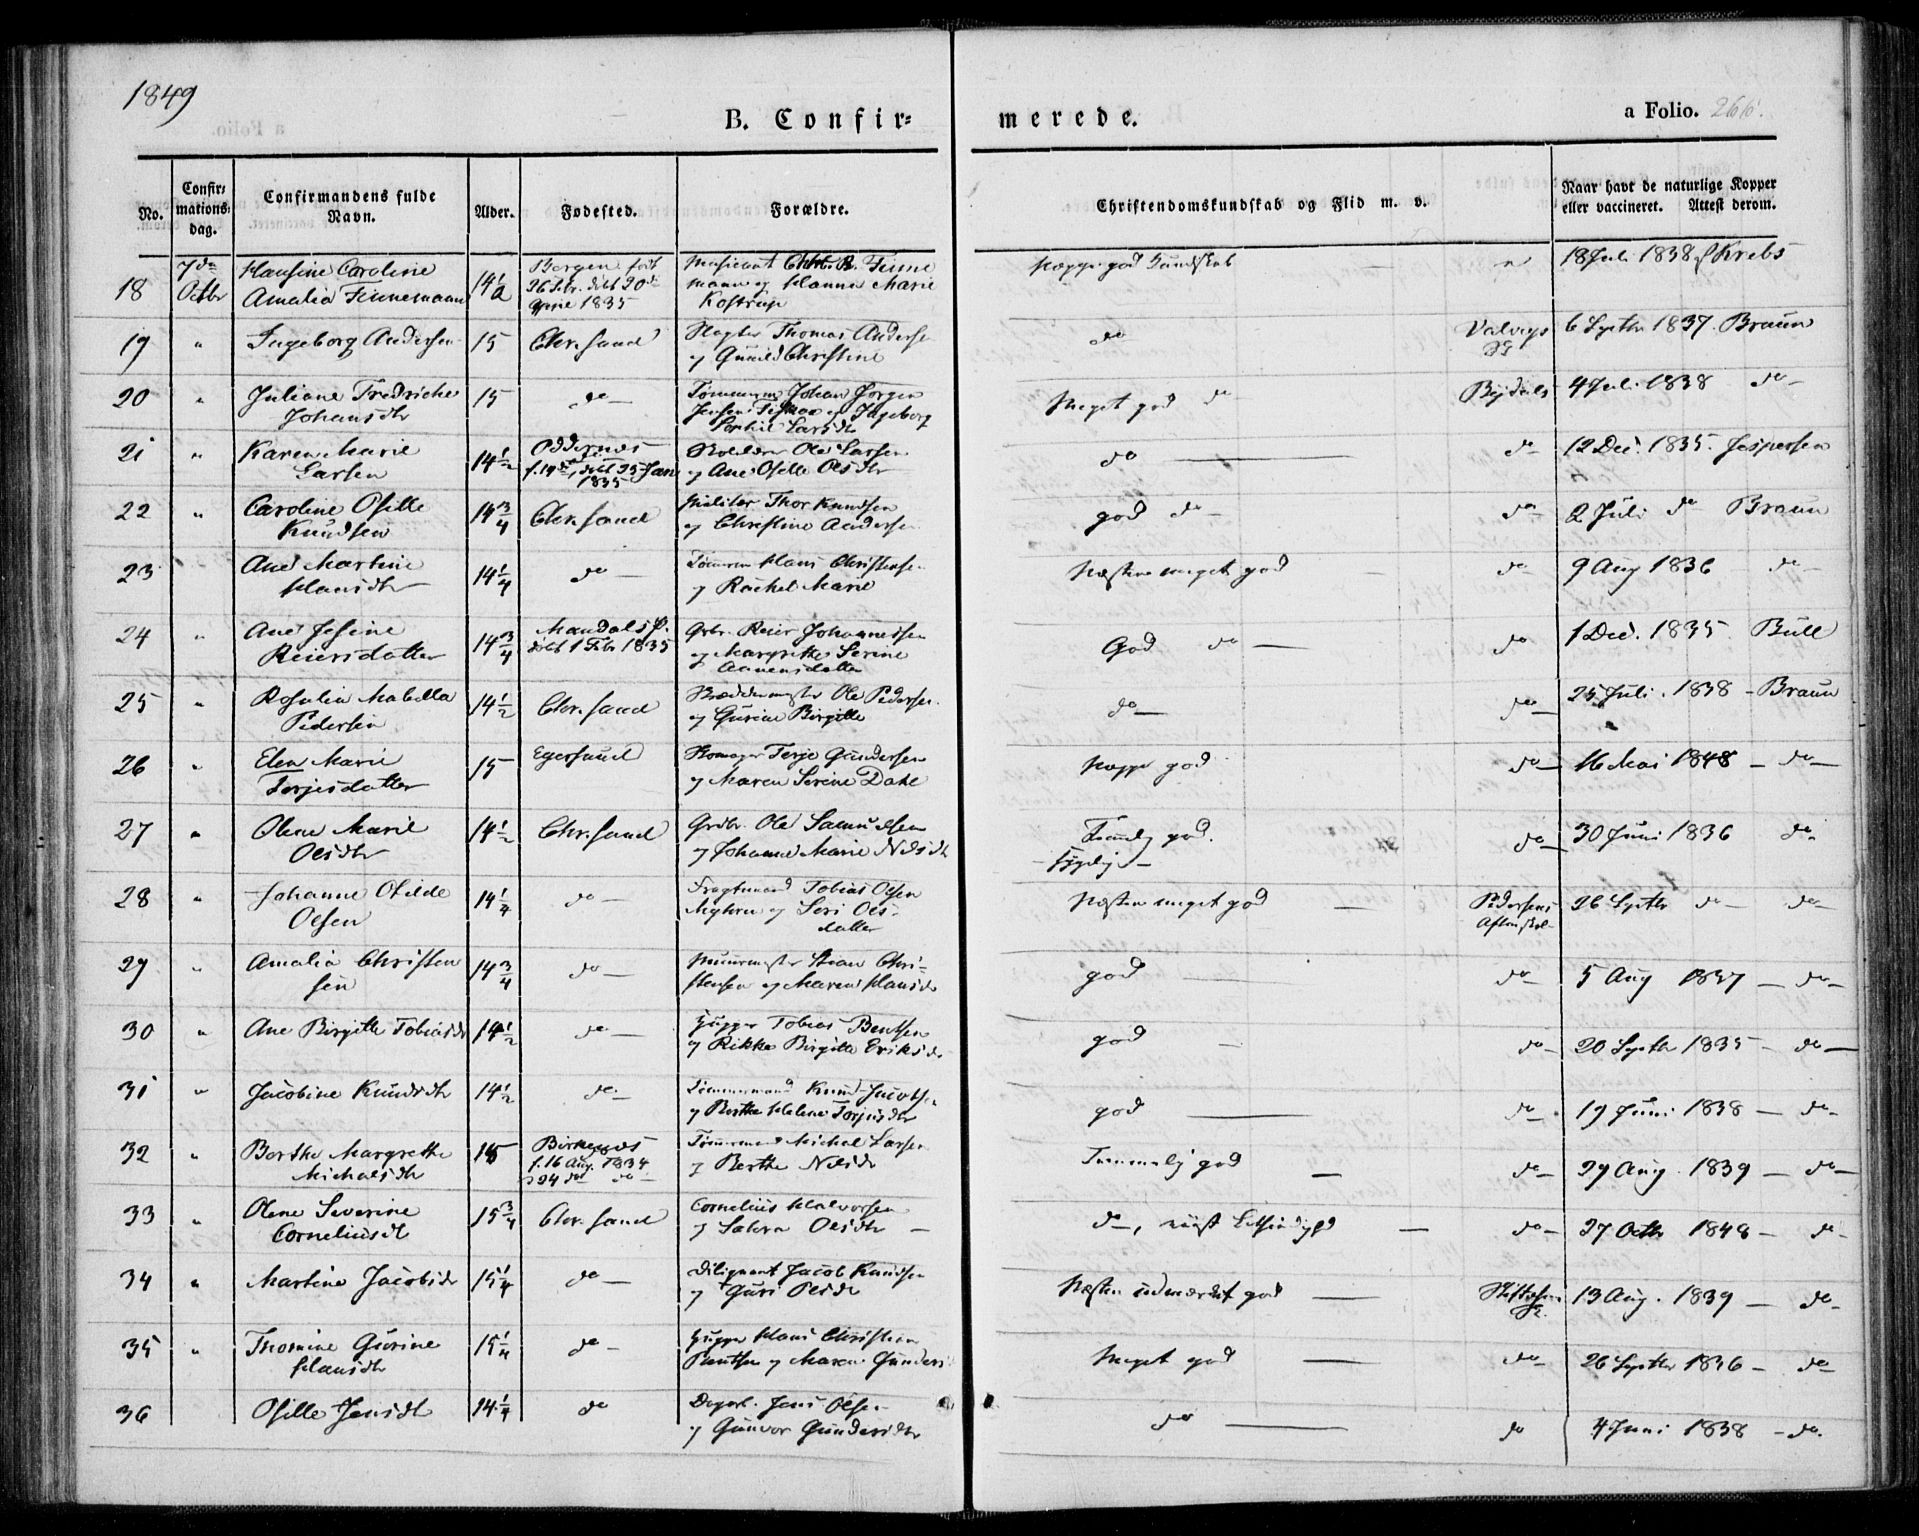 1849
B. Confir=
merede.
a Folio. 266.
No.
Confir=
mations=
dag.
Confirmandens fulde
Navn.
Alder.
Fødested.
Forældre.
Christendomskundskab og Flid m. v.
Naar havt de naturlige Kopper
eller vaccineret. Attest derom.
18 7de Octbr Hansine Caroline 14 1/2 Bergen født
Amalia Finnemann 26 Febr. døbt 20de April 1835
Musicant Chr. B. Finne
mann og Hanna Marie
Kostrup
Neppe god Kundskab 18 Juli 1838 Krebs
19 " Ingeborg Andersen 15 Chr.sand
Thomas Anderse
og Gunild Christine
do 6 Septbr 1837. Braun
20 " Juliane Fredricke
Johansdtr 15 do
Tømmerm Johan Jørgen
Jensen og Ingeborg
Sophie Larsdtr
Meget god do 4 Juli 1838 do
21 " Karen Marie
Larsen 14 1/2 Oddernes
f. 19de døbt 25 Jan
1835
Ole Larsen
og Ane Osille Olsdtr
do do 12 Dec. 1835. Jespersen
22 " Caroline Osille
Knudsen 14 3/4 Chr.sand
Thor Knudsen
og Christine Anderse
god do do 2 Juli do Braun
23 " Ane Martine
Hansdtr 14 1/4 do
Tømmerm Hans Christense
og Rachel Marie
Næsten meget god do 9 Aug 1836 do
24 " Ane Jesine
Reiersdatter 14 3/4 Mandals P.
døbt 1 Febr 1835
Grbr. Reier Johannessen
og Margrethe Serine
Aanensdatter
God do do 1 Dec. 1835. Bull
25 " Rosalia Mabella
Pedersen 14 1/2 Chr.sand
Ole Pederse
og Gurine Birgitte
do do 25 Juli 1838 - Braun
26 " Elen Marie
Terjesdatter 15 Egersund
Skomager Terje Gundersen
og Maren Serine Dahl
Neppe god do 16 Mai 1848 - do
27 " Olene Marie
Olsdtr 14 1/2 Chr.sand
Grdbr. Ole Samuelsen
og Johanne Marie Nilsdtr
Temmelig god. do 30 Juni 1836 do
28 " Johanne Otilde
Olsen 14 1/4 do
Fragtmand Tobias Olsen
og Seri Ols
datter
Næsten meget god Pedersens
Aftenskol 26 Septbr do do
29 " Amalia Christen
sen 14 3/4 do
Muurmester Chri-
stensen og Maren Hansdr
god do 5 Aug 1837 do
30 " Ane Birgitte Tobiasdr 14 1/2 do
Tobias Bentsen
og Rikke Birgitte Eriksdr
god do 20 Septbr 1835 - do
31 " Jacobine Knudsdtr 14 1/2 do
Tømmermand Knud Jacobse
og Berthe Helene Terjesdtr
god do 19 Juni 1838 - do
32 " Berthe Margrethe
Michalsdtr 15 Birkenes
f. 16 Aug. 1834
24de do
Tømmermand Michal Larsen
og Berthe Nilsdr
Temmelig god do 29 Aug 1839 - do
33 " Olene Severine
Corneliusdt 15 3/4 Chr.sand
Cornelius Halvorsen
og Olsdtr
do, do 27 Octbr 1848 do
34 " Martine Jacobsdr 15 1/4 do
Jacob Knudsen
og Guri Olsdtr
Næsten udmærket god 13 Aug. 1839 - do
35 " Thomine Gurine
Hansdtr 15 1/4 do
Hans Christian
og Maren Gunders
Meget god do 26 Septbr 1836 - do
36 Osille Jensdtr 14 1/4 do
Jens Olsen
og Gunvor Gundersdtr
do do 4 Juni 1838 - do.